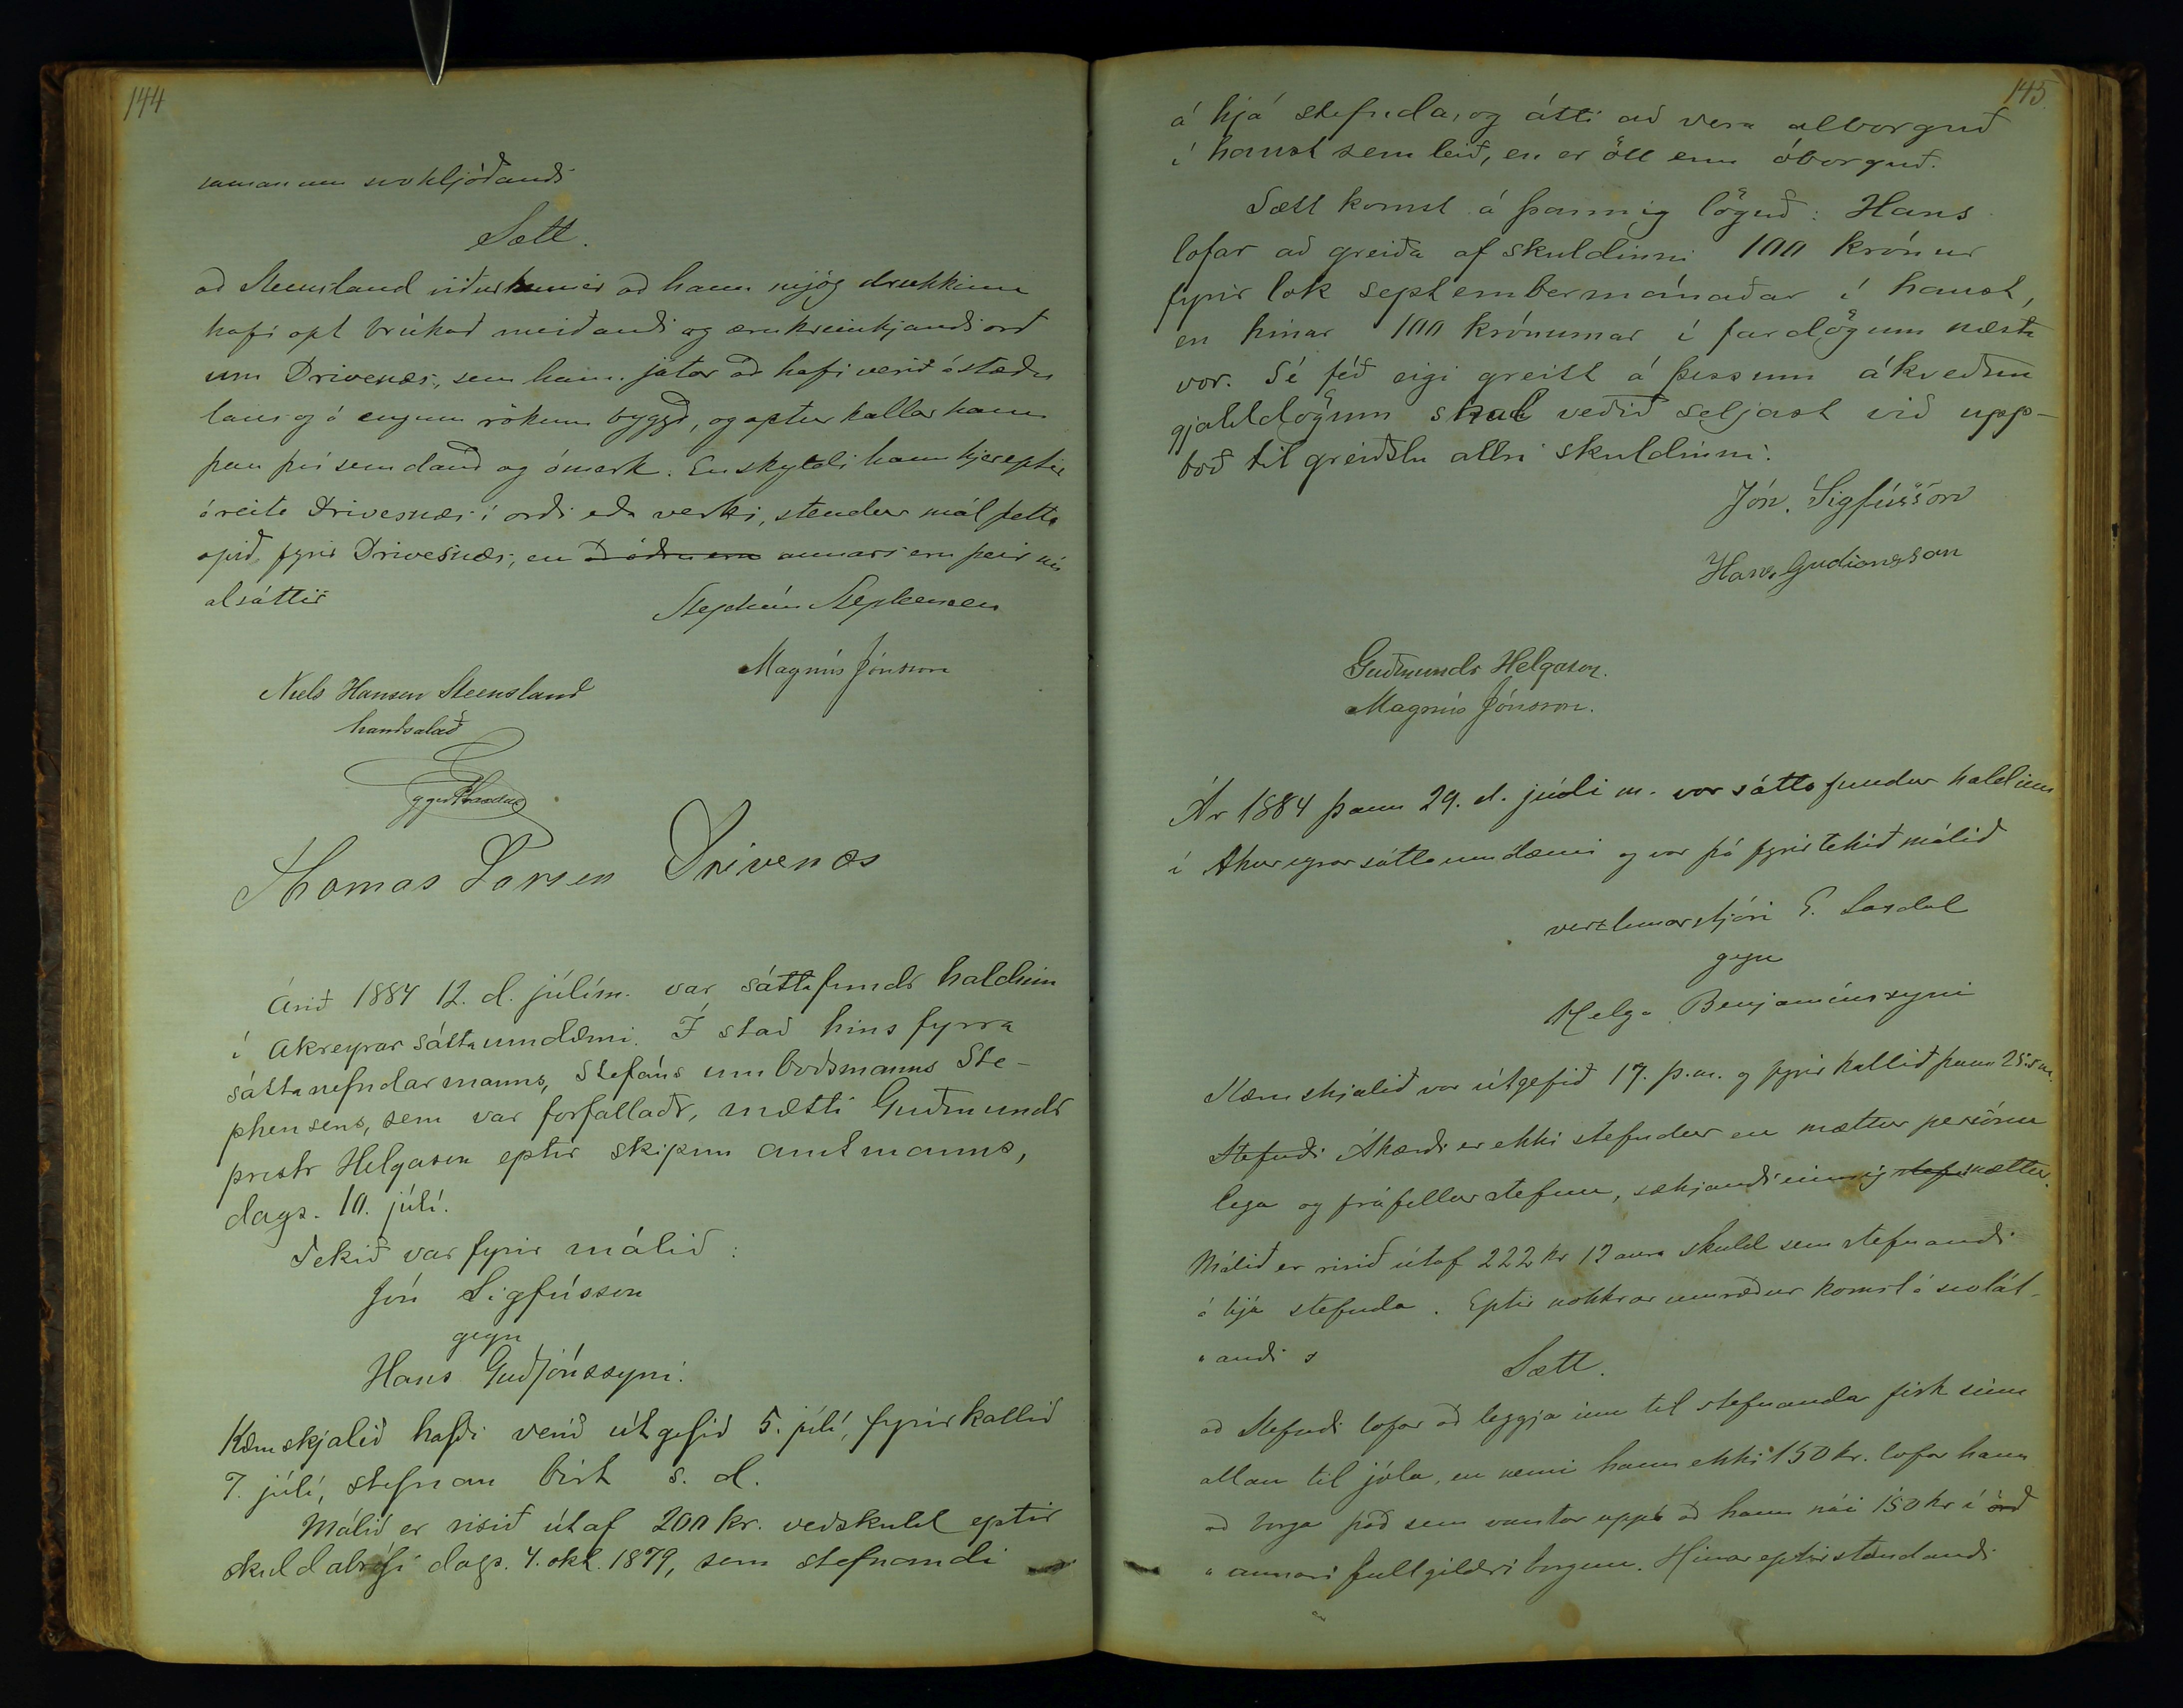 144
saman um svohljóðandi
Sætt.
að Steensland viðurkennir að hann mjög drukkinn
hafi opt brúkað meiðandi og ærukreinkjandi orð
um Drivenæs, sem hann játar að hafi verið ástæðu
laus og á engum rökum byggð, og aptur kallar hann
þau því sem dauð og ómerk. En skyldi hann hjereptir
áreita Drivesnæs í orði eða verki, stendur mál þetta
opið fyrir Drivesnæs, en að öðru em annars eru þeir nú
alsáttir
Stephán Stephensen
Magnús Jónsson
Niels Hansen Steensland
handsalað
Thomas Larsen Drivenæs
Árið 1884 12. d. júlím. var sáttafundr haldinn
í Akreyrar sáttaumdæmi. Í stað hins fyrra
sáttanefndarmanns, Stefáns umboðsmanns Ste-
phensens, sem var forfallaðr, mætti Guðmundr
prestr Helgason eptir skipun amtmanns,
dags. 10. júlí.
Tekið var fyrir málið:
Jón Sigfússon
gegn
Hans Guðjónssyni.
Kæruskjalið hafði verið útgefið 5. júlí, fyrirkallið
7. júlí, stefnan birt s. d.
Málið er risið útaf 200 kr. veðskuld eptir
skuldabréfi dags. 4. okt. 1879, sem stefnandi
145
á hjá stefnda, og átti að vera alborguð
í haust sem leið, en er öll enn óborguð.
Sætt komst á þannig löguð: Hans
lofar að greiða af skuldinni 100 krónur
fyrir lok septembermánaðar í haust,
en hinar 100 krónurnar í fardögum næsta
vor. Sé féð eigi greitt á þessum ákveðnu
gjalddögum skal veðið seljast við upp-
boð til greiðslu allri skuldinni.
Jón. Sigfússon
Hans Gudionsson
Guðmundr Helgason.
Magnús Jónsson.
Ár 1884 þann 29. d. júli m. var sáttafundur haldinn
í Akureyrarsáttaumdæmi og var þá fyrirtekið málið
verzlunarstjóri E. Laxdal
gegn
Helga Benjamínssyni
Kæruskjalið var útgefið 17. þ.m. og fyrirkallið þann 25. s.m.
Stefndi Ákærði er ekki stefndur en mættur persónu
lega og fráfellur stefnu, sækjandi einnig stefn mættur.
Málið er risið útaf 222 kr 12 aura skuld sem stefnandi
á hjá stefnda. Eptir nokkrar umræður komst á svolát-
"andi
Sætt.
að stefndi lofar að leggja inn til stefnanda fisk sinn
allan til jóla, en nemi hann ekki 150 kr. lofar hann
að borga það sem vantar uppá að hann nái 150 kr í
" annari fullgildri borgun. Hinar eptirstandandi